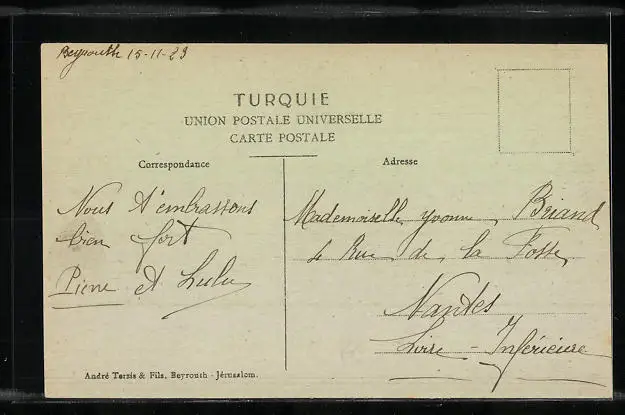 Beyrouth 15-11-23
TURQUIE
UNION POSTALE UNIVERSELLE
CARTE POSTALE
Correspondance
Adresse
Nous t'embrassons
bien fort
Pierre et Lulu
Mademoiselle Yvonne Briand
4 Rue de la Fosse
Nantes
Loire-Inférieure
André Terzis & Fils, Beyrouth - Jérusalem.